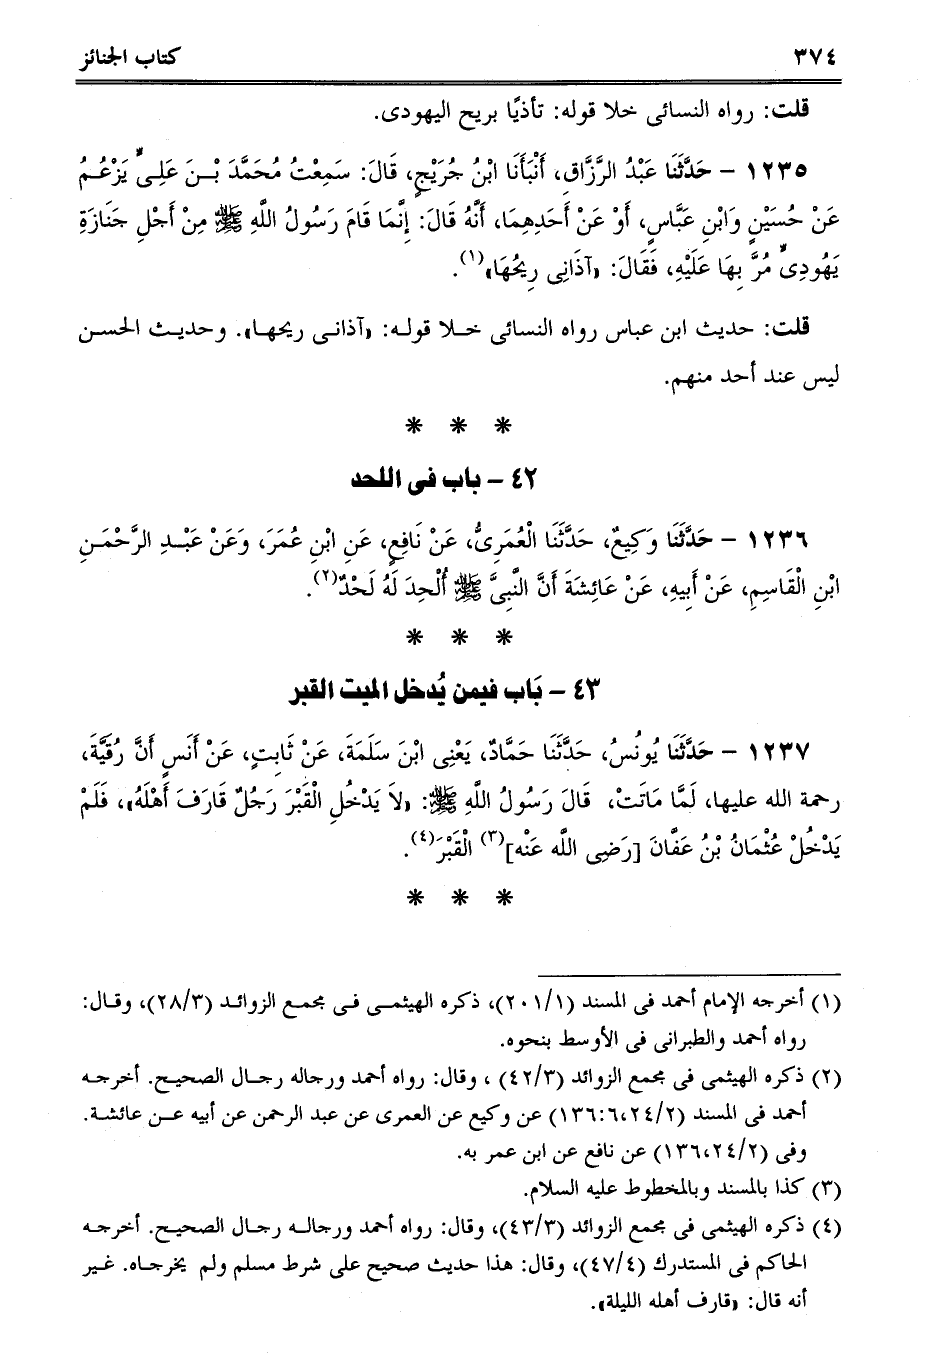 ٣٧٤
كتاب الجنائز
قلت: رواه النسائى خلا قوله: تأذيًا بريح اليهودى.
١٢٣٥ – حَدَّثَنَا عَبْدُ الرَّزَّاق، أَنْبَأَنَا ابْنُ جُرَيْجٍ، قَالَ: سَمِعْتُ مُحَمَّدَ بْـنَ عَلِىٍّ يَزْعُـمُ
عَنْ حُسَيْنٍ وَابْنِ عَبَّاسٍ، أَوْ عَنْ أَحَدِهِمَا، أَنَّهُ قَالَ: إِنَّمَا قَامَ رَسُولُ اللَّهِ ﷺ مِنْ أَجْلِ جَنَازَةِ
يَهُودِىٍّ مُرَّ بِهَا عَلَيْهِ، فَقَالَ: «آذَانِى رِيحُهَا»(١).
قلت: حديث ابن عباس رواه النسائى خـلا قولـه: «آذانـى ريحهـا». وحديـث الحسـن
ليس عند أحد منهم.
* * *
٤٢ – باب فى اللحد
١٢٣٦ – حَدَّثَنَا وَكِيعٌ، حَدَّثَنَا الْعُمَرِىُّ، عَنْ نَافِعٍ، عَنِ ابْنِ عُمَرَ، وَعَنْ عَبْـدِ الرَّحْمَـنِ
ابْنِ الْقَاسِمِ، عَنْ أَبِيهِ، عَنْ عَائِشَةَ أَنَّ النَّبِىَّ ﷺ أُلْحِدَ لَهُ لَحْدٌ(٢).
* * *
٤٣ – بَاب فيمن يُدخل الميت القبر
١٢٣٧ – حَدَّثَنَا يُونُسُ، حَدَّثَنَا حَمَّادٌ، يَعْنِى ابْنَ سَلَمَةَ، عَنْ ثَابِتٍ، عَنْ أَنَسٍ أَنَّ رُقَيَّةَ،
رحمة الله عليها، لَمَّا مَاتَتْ، قَالَ رَسُولُ اللَّهِ ﷺ: «لاَ يَدْخُلِ الْقَبْرَ رَجُلٌ قَارَفَ أَهْلَهُ»، فَلَمْ
يَدْخُلْ عُثْمَانُ بْنُ عَفَّانَ [رَضِى اللَّه عَنْه](٣) الْقَبْرَ(٤).
* * *
(١) أخرجه الإمام أحمد فى المسند (٢٠١/١)، ذكره الهيثمـى فـى مجمع الزوائـد (٢٨/٣)، وقـال:
رواه أحمد والطبرانى فى الأوسط بنحوه.
(٢) ذكره الهيثمى فى مجمع الزوائد (٤٢/٣) ، وقال: رواه أحمد ورجاله رجـال الصحيـح. أخرجـه
أحمد فى المسند (٢٤/٢،‏١٣٦:٦) عن وكيع عن العمرى عن عبد الرحمن عن أبيه عـن عائشـة.
وفى (٢٤/٢،‏١٣٦) عن نافع عن ابن عمر به.
(٣) كذا بالمسند وبالمخطوط عليه السلام.
(٤) ذكره الهيثمى فى مجمع الزوائد (٤٣/٣)، وقال: رواه أحمد ورجالـه رجـال الصحيـح. أخرجـه
الحاكم فى المستدرك (٤٧/٤)، وقال: هذا حديث صحيح على شرط مسلم ولم يخرجـاه. غـير
أنه قال: «قارف أهله الليلة».